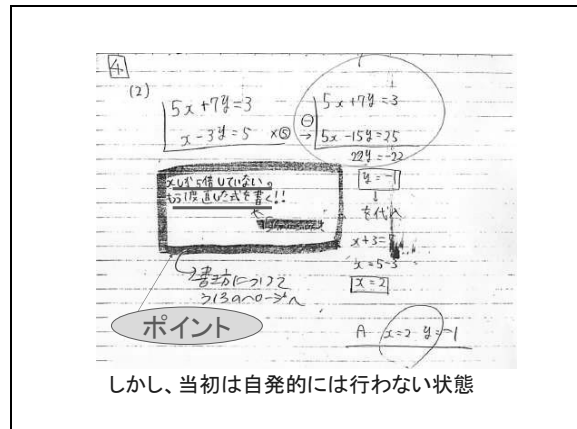 4
(2)
5x+7y=3
x-3y=5 ×⑤
5x+7y=3
⊖
→ 5x-15y=25
22y=-22
y=-1
↓
を代入
x+3=
x=5-3
x=2
xしか5倍していない。
もう1度直した式を書く!!
書き方について
うしろのページへ
ポイント
A x=2 y=-1
しかし、当初は自発的には行わない状態